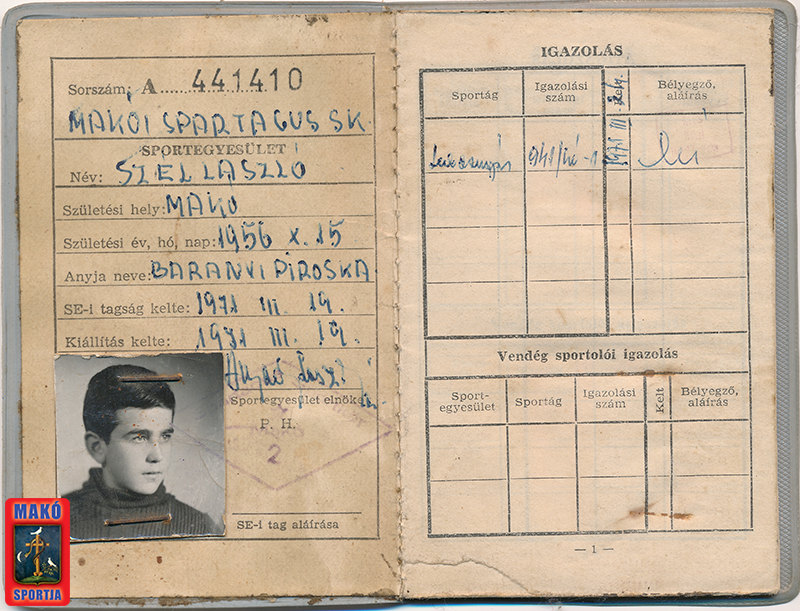 Sorszám, A 441410
MAKÓI SPARTACUS SK.
SPORTEGYESÜLET
Név: SZÉL LÁSZLÓ
Születési hely: MAKÓ
Születési év, hó, nap: 1956 X. 15
Anyja neve: BARANYI PIROSKA
SE-i tagság kelte: 1971 III. 19.
Kiállítás kelte: 1971 III. 19.
Sportegyesület elnöke
P. H.
2
SE-i tag aláírása
MAKÓ
SPORTJA
IGAZOLÁS
Sportág
Igazolási szám
Kelt.
Bélyegző, aláírás
1971 III
Vendég sportolói igazolás
Sport-
egyesület
Sportág
Igazolási
szám
Kelt
Bélyegző,
aláírás
— 1 —